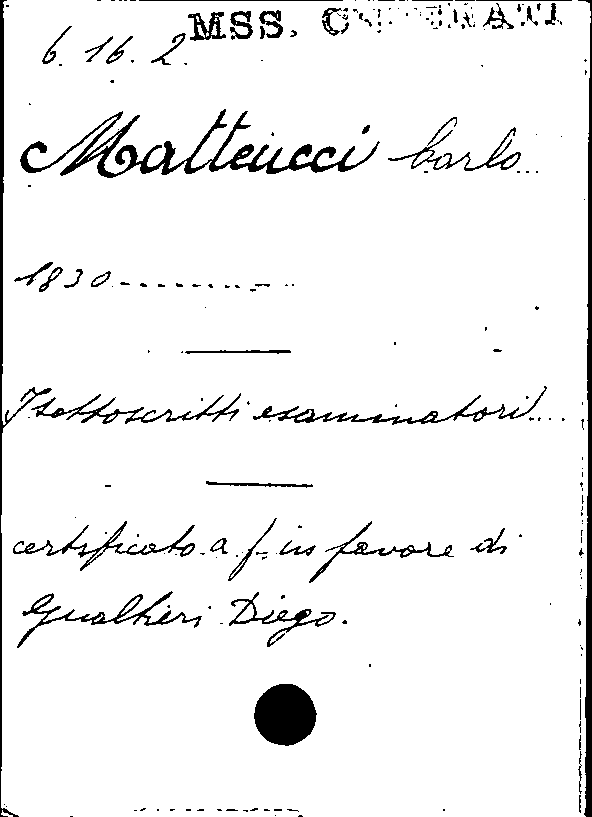 MSS.
6. 16. 2.
Matteucci Carlo...
1830.............
I sottoscritti esaminatori....
certificato a f. in favore di
Gualtieri Diego.